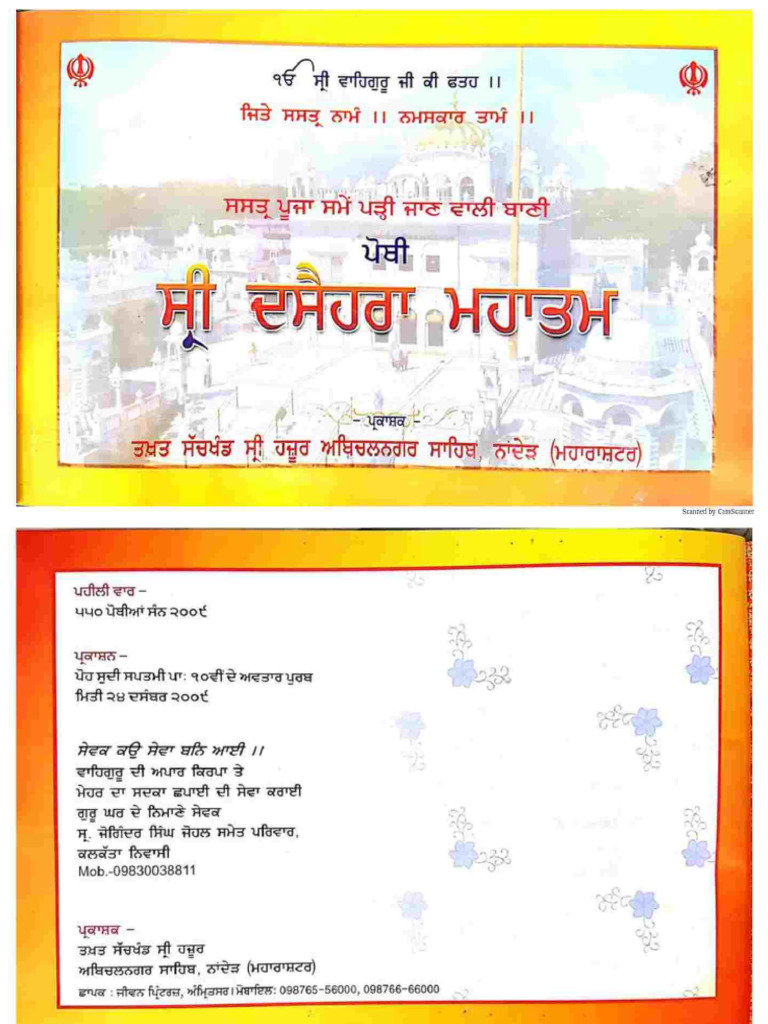 ੴ ਸ੍ਰੀ ਵਾਹਿਗੁਰੂ ਜੀ ਕੀ ਫਤਹ ॥
ਜਿਤੇ ਸਸਤ੍ਰ ਨਾਮੰ ॥ ਨਮਸਕਾਰ ਤਾਮੰ ॥
ਸਸਤ੍ਰ ਪੂਜਾ ਸਮੇਂ ਪੜ੍ਹੀ ਜਾਣ ਵਾਲੀ ਬਾਣੀ
ਪੋਥੀ
ਸ੍ਰੀ ਦਸੈਹਰਾ ਮਹਾਤਮ
– ਪ੍ਰਕਾਸ਼ਕ –
ਤਖ਼ਤ ਸੱਚਖੰਡ ਸ੍ਰੀ ਹਜ਼ੂਰ ਅਬਿਚਲਨਗਰ ਸਾਹਿਬ, ਨਾਂਦੇੜ (ਮਹਾਰਾਸ਼ਟਰ)
Scanned by CamScanner
ਪਹੀਲੀ ਵਾਰ –
੫੫੦ ਪੋਥੀਆਂ ਸੰਨ ੨੦੦੯
ਪ੍ਰਕਾਸ਼ਨ –
ਪੋਹ ਸੁਦੀ ਸਪਤਮੀ ਪਾ: ੧੦ਵੀਂ ਦੇ ਅਵਤਾਰ ਪੁਰਬ
ਮਿਤੀ ੨੪ ਦਸੰਬਰ ੨੦੦੯
ਸੇਵਕ ਕਉ ਸੇਵਾ ਬਨਿ ਆਈ ॥
ਵਾਹਿਗੁਰੂ ਦੀ ਅਪਾਰ ਕਿਰਪਾ ਤੇ
ਮੇਹਰ ਦਾ ਸਦਕਾ ਛਪਾਈ ਦੀ ਸੇਵਾ ਕਰਾਈ
ਗੁਰੂ ਘਰ ਦੇ ਨਿਮਾਣੇ ਸੇਵਕ
ਸ੍ਰ. ਜੋਗਿੰਦਰ ਸਿੰਘ ਜੋਹਲ ਸਮੇਤ ਪਰਿਵਾਰ,
ਕਲਕੱਤਾ ਨਿਵਾਸੀ
Mob.-09830038811
ਪ੍ਰਕਾਸ਼ਕ –
ਤਖ਼ਤ ਸੱਚਖੰਡ ਸ੍ਰੀ ਹਜ਼ੂਰ
ਅਬਿਚਲਨਗਰ ਸਾਹਿਬ, ਨਾਂਦੇੜ (ਮਹਾਰਾਸ਼ਟਰ)
ਛਾਪਕ : ਜੀਵਨ ਪ੍ਰਿੰਟਰਜ਼, ਅੰਮ੍ਰਿਤਸਰ। ਮੋਬਾਇਲ: 098765-56000, 098766-66000